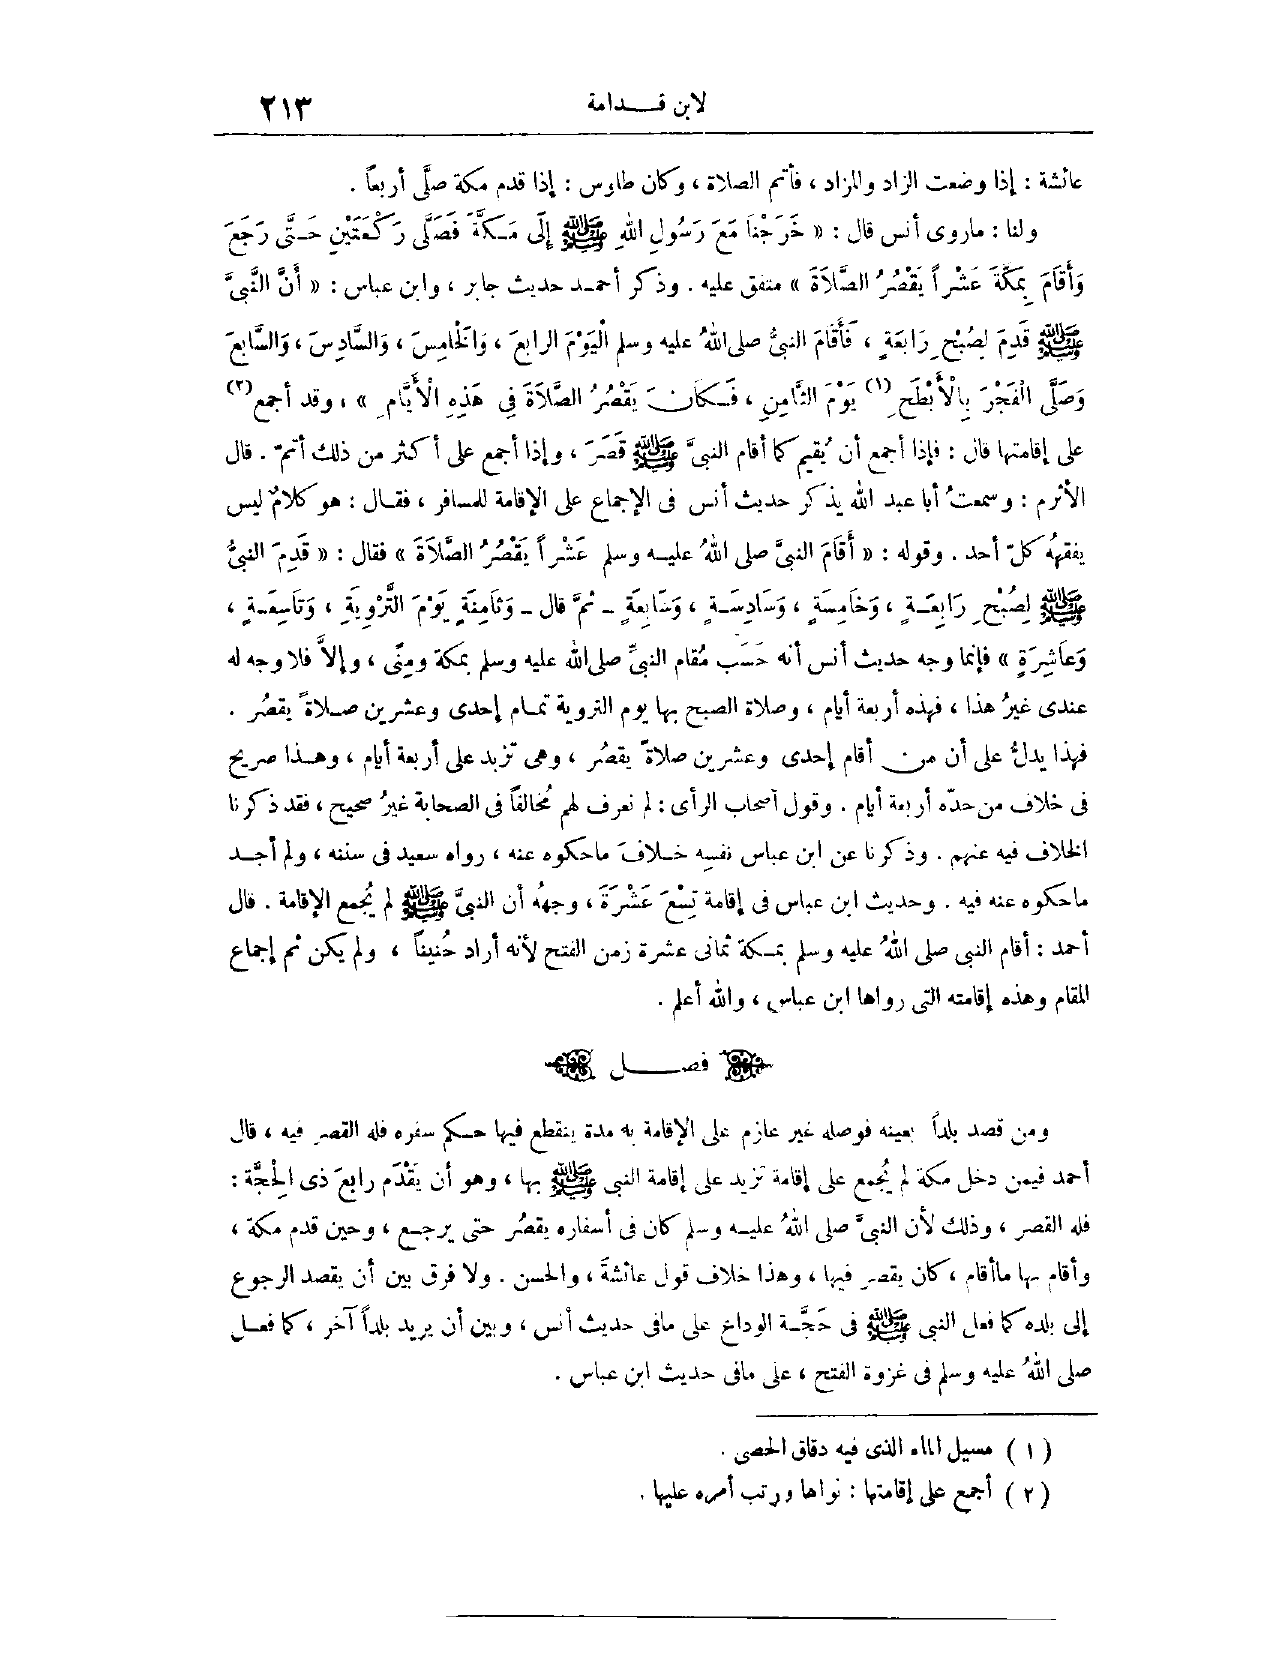 لابن قــدامة ٢١٣
عائشة : إذا وضعت الزاد والمزاد ، فأتم الصلاة ، وكان طاوس : إذا قدم مكة صلَّى أربعاً .
ولنا : ماروى أنس قال : « خَرَجْنَا مَعَ رَسُولِ اللهِ ﷺ إِلَى مَـكَّةَ فَصَلَّى رَكْعَتَيْنِ حَـتَّى رَجَعَ
وَأَقَامَ بِمَكَّةَ عَشْراً يَقْصُرُ الصَّلَاةَ » متفق عليه . وذكر أحمـد حديث جابر ، وابن عباس : « أَنَّ النَّبِىَّ
ﷺ قَدِمَ لِصُبْحِ رَابِعَةٍ ، فَأَقَامَ النبىُّ صلى اللهُ عليه وسلم الْيَوْمَ الرابعَ ، وَالْخَامِسَ ، وَالسَّادِسَ ، وَالسَّابِعَ
وَصَلَّى الْفَجْرَ بِالْأَبْطَحِ (١) يَوْمَ الثَّامِنِ ، فَـكَانَ يَقْصُرُ الصَّلَاةَ فِى هَذِهِ الْأَيَّامِ » ، وقد أجمع (٢)
على إقامتها قال : فإذا أجمع أن يُقيم كما أقام النبىَّ ﷺ قَصَرَ ، وإذا أجمع على أكثر من ذلك أتمّ . قال
الأثرم : وسمعتُ أبا عبد الله يذكر حديث أنس فى الإجماع على الإقامة للمسافر ، فقـال : هو كلامٌ ليس
يفقههُ كلّ أحد . وقوله : « أَقَامَ النبىَّ صلى اللهُ عليـه وسلم عَشْراً يَقْصُرُ الصَّلَاةَ » فقال : « قَدِمَ النبىُّ
ﷺ لِصُبْحِ رَابِعَـةٍ ، وَخَامِسَةٍ ، وَسَادِسَـةٍ ، وَسَابِعَةٍ ـ ثمَّ قال ـ وَثَامِنَةٍ يَوْمَ التَّرْوِيَةِ ، وَتَاسِعَـةٍ ،
وَعَاشِرَةٍ » فإنما وجه حديث أنس أنه حَسَب مُقام النبىِّ صلى الله عليه وسلم بمكة ومِنًى ، وإلاَّ فلا وجه له
عندى غيرُ هذا ، فهذه أربعة أيام ، وصلاة الصبح بها يوم التروية تمـام إحدى وعشرين صـلاةً يقصُر .
فهذا يدلُّ على أن من أقام إحدى وعشرين صلاةً يقصُر ، وهى تزيد على أربعة أيام ، وهـذا صريح
فى خلاف من حدّه أربعة أيام . وقول أصحاب الرأى : لم نعرف لهم مُخالفاً فى الصحابة غيرُ صحيح ، فقد ذكرنا
الخلاف فيه عنهم . وذكرنا عن ابن عباس نفسِه خـلافَ ماحكوه عنه ، رواه سعيد فى سننه ، ولم أجـد
ماحكوه عنه فيه . وحديث ابن عباس فى إقامة تِسْعَ عَشْرَةَ ، وجههُ أن النبىَّ ﷺ لم يُجمع الإقامة . قال
أحمد : أقام النبى صلى اللهُ عليه وسلم بمـكة ثمانى عشرة زمن الفتح لأنه أراد حُنيناً ، ولم يكن ثم إجماع
المقام وهذه إقامته التى رواها ابن عباس ، والله أعلم .
فصـــل
ومن قصد بلداً بعينه فوصله غير عازم على الإقامة به مدة ينقطع فيها حـكم سفره فله القصر فيه ، قال
أحمد فيمن دخل مكة لم يُجمع على إقامة تزيد على إقامة النبى ﷺ بها ، وهو أن يَقْدَم رابعَ ذى الْحِجَّة :
فله القصر ، وذلك لأن النبىَّ صلى اللهُ عليـه وسلم كان فى أسفاره يقصُر حتى يرجـع ، وحين قدم مكة ،
وأقام بها ماأقام ، كان يقصر فيها ، وهذا خلاف قول عائشةَ ، والحسن . ولا فرق بين أن يقصد الرجوع
إلى بلده كما فعل النبى ﷺ فى حَجَّـة الوداع على مافى حديث أنس ، وبين أن يريد بلداً آخر ، كما فعـل
صلى اللهُ عليه وسلم فى غزوة الفتح ، على مافى حديث ابن عباس .
( ١ ) مسيل الماء الذى فيه دقاق الحصى .
( ٢ ) أجمع على إقامتها : نواها ورتب أمره عليها .